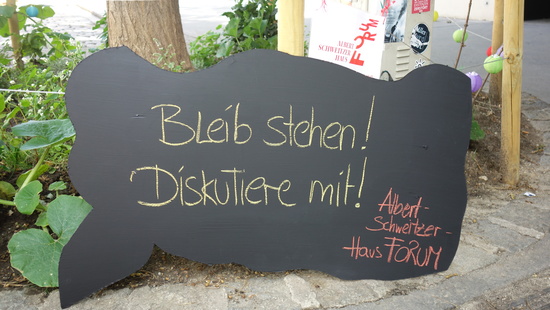 ALBERT
SCHWEITZER
HAUS
FORUM
Bleib stehen!
Diskutiere mit!
Albert-
Schweitzer-
Haus FORUM